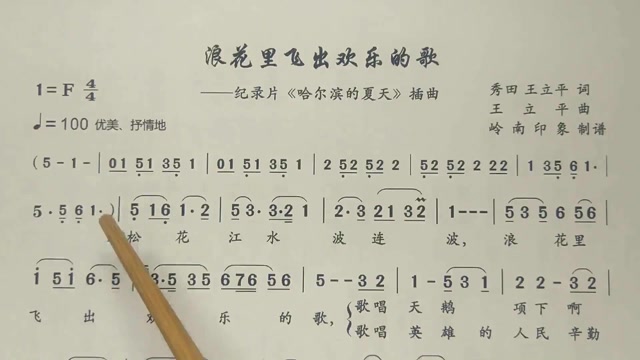 浪花里飞出欢乐的歌
——纪录片《哈尔滨的夏天》插曲
1=F 4/4
♩=100 优美、抒情地
秀田 王立平 词
王 立 平 曲
岭 南 印 象 制谱
(5-1- | 01 51 35 1 | 01 51 35 1 | 2 52 52 2 | 2 52 52 2 | 0123 5235 | 1 35 61·
5·5 6 1·) | 5 16 1·2 | 53·3·2 1 | 2·3 21 32 | 1--- | 5 35 6 56
松 花 江 水 波 连 波, 浪 花 里
1 51 6·5 | 3·5 35 676 56 | 5--32 | 1--51 | 2-2 32
飞 出 欢 乐 的 歌, 歌唱 天 鹅 项 下 啊
歌唱 英 雄 的 人 民 辛勤